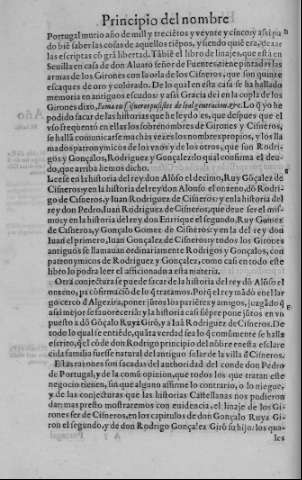 Principio del nombre
Portugal murio año de mill y treciētos y veynte y cinco y assi pu
do biē saber las cosas de aquellos tiēpos, y siendo quiē era, de ae
las escripturas cō grā libertad. Tābiē el libro de linajes, que està en
Seuilla en casa de don Aluaro señor de Fuentes, tiene pintadas las
armas de los Girones con la orla de los Cisneros, que son quinze
escaques de oro y colorado. De lo qual en esta casa se ha hallado
memoria en antiguos escudos y assi Gracia dei en la copla de los
Girones dixo,
Lo q̄ yo he
podido sacar de las historias que he leydo es, que despues que el
vso freqūento en ellas los sobrenombres de Girones y Cisneros,
se halla comunicarse muchas vezes los nombres propios, y los lla
mados patronymicos de los vnos y de los otros, que son Rodri-
gos y Gonçalos, Rodriguez y Gonçalez lo qual confirma el deu-
do, que arriba hemos dicho.
Leese en la historia del rey don Alōso el decimo, Ruy Gōçalez de
Cisneros: y en la historia del rey don Alonso el onzeno, dō Rodri-
go de Cisneros, y Iuan Rodriguez de Cisneros: y en la historia del
rey don Pedro, Iuan Rodriguez de Cisneros, que deue ser el mis-
mo; y en la historia del rey don Enrique el segundo, Ruy Gomez
de Cisneros, y Gonçalo Gomez de Cisneros: y en la del rey don
Iuan el primero, Iuan Gonçalez de Cisneros: y todos los Girones
antiguos se llamauan ordinariamente Rodrigos y Gonçalos, con
patronymicos de Rodriguez y Gonçalez, como casi en todo este
libro lo podra leer el afficionado a esta materia.
Otra conjectura se puede sacar de la historia del rey dō Alōso el
onzeno, pa confirmaciō de lo q̄ tratamos. Porq̄ el rey mādò en el lar
go cerco d'Algezira, poner jūtos los pariētes y amigos, juzgādo q̄
assi mejor se fauorecerià: y la historia casi siēpre pone jūtos en vn
puesto a dō Gōçalo Ruyz Girō, y a Iuā Rodriguez de Cisneros. De
todo lo qual se entiēde, quāta verdad sea lo q̄ comūmente se halla
escrito, q̄ el cōde don Rodrigo principio del nōbre en esta esclare
cida familia fuesse natural del antiguo solar de la villa d'Cisneros.
Estas razones son sacadas del authoridad del conde don Pedro
de Portugal, y de la comū opinion, que todos los que tratan este
negocio tienen, sin que alguno affirme lo contrario, o lo niegue,
y de las conjecturas que las historias Castellanas nos pudieron
dar: mas presto mostraremos con euidencia, el linaje de los Gi-
rones ser de Cisneros, en los capitulos de don Gonçalo Ruyz Gi-
ron el segundo, y de don Rodrigo Gonçalez Girō su hijo: los qua-
les